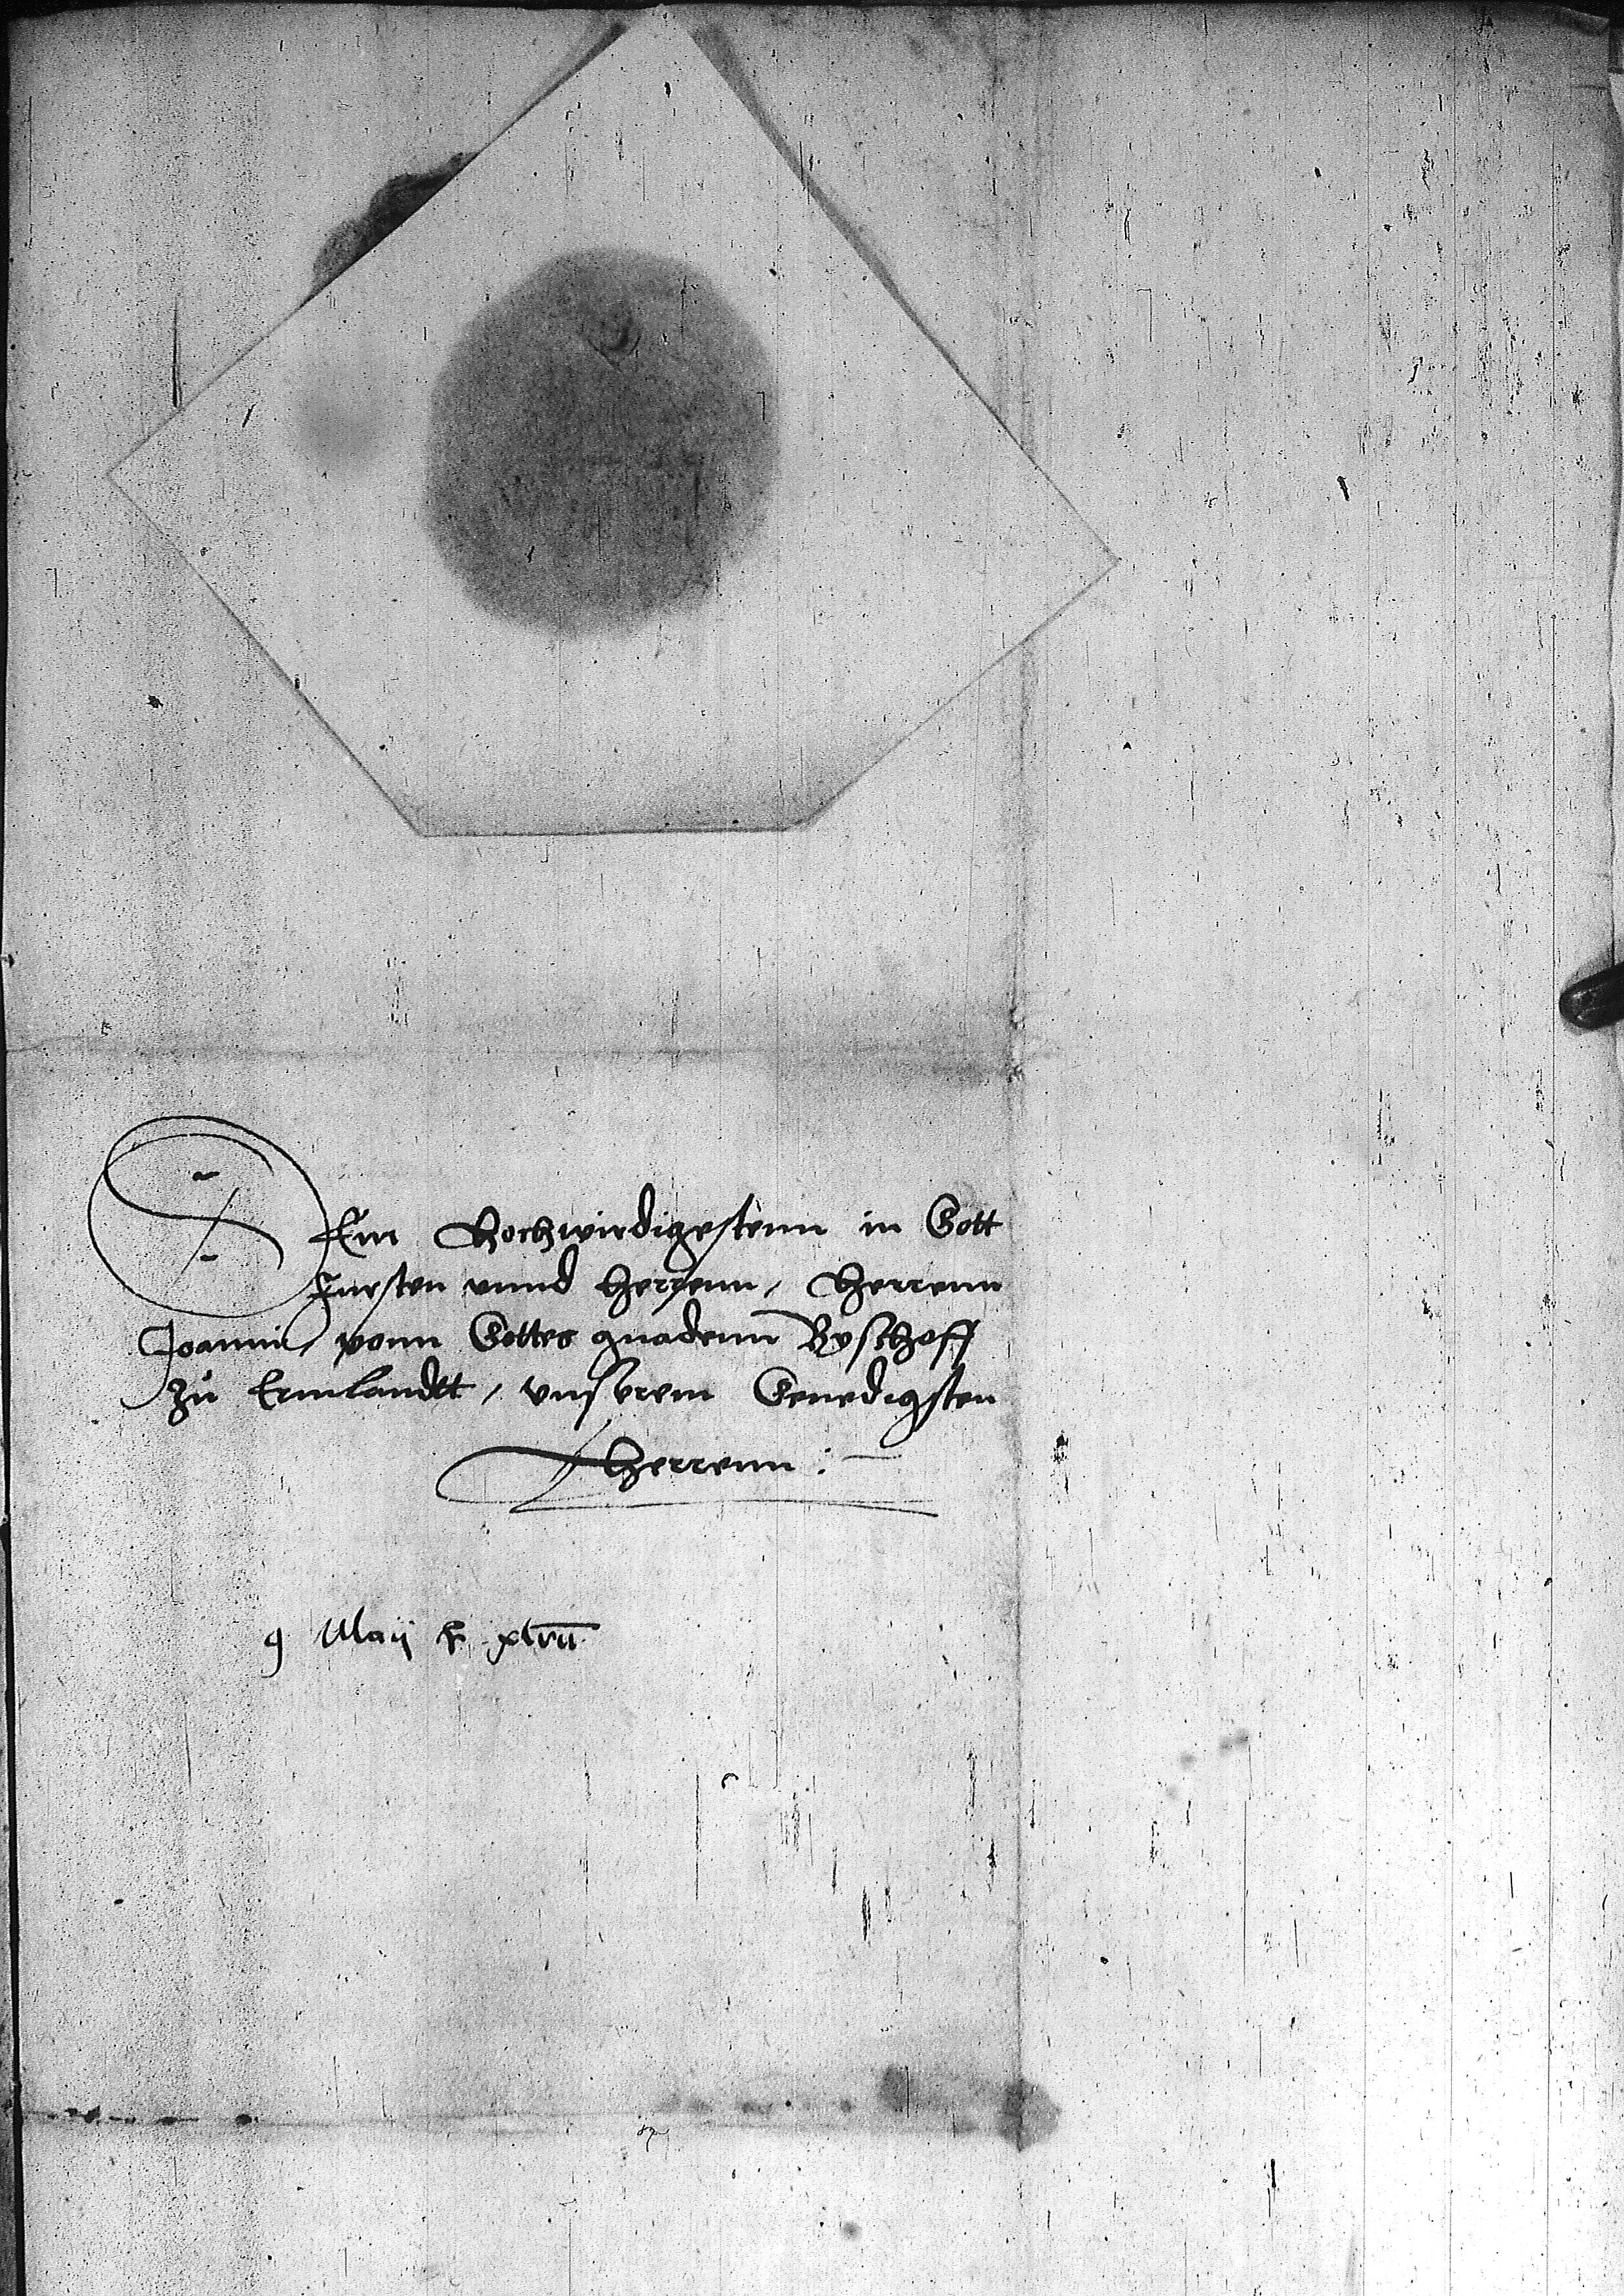 DEm Hochwirdigestenn in Gott
Fursten vnnd herrenn, Herrenn
Joanni, vonn Gottes gnadenn Byschoff
zu Ermlandtt, vnserem Genedigsten
Herrenn:
9 Maij xlvii